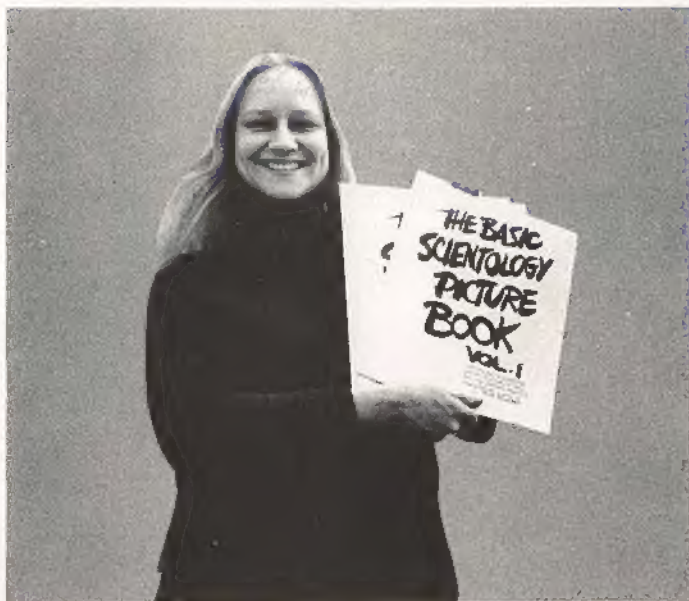 THE BASIC
SCIENTOLOGY
PICTURE
BOOK
VOL. 1